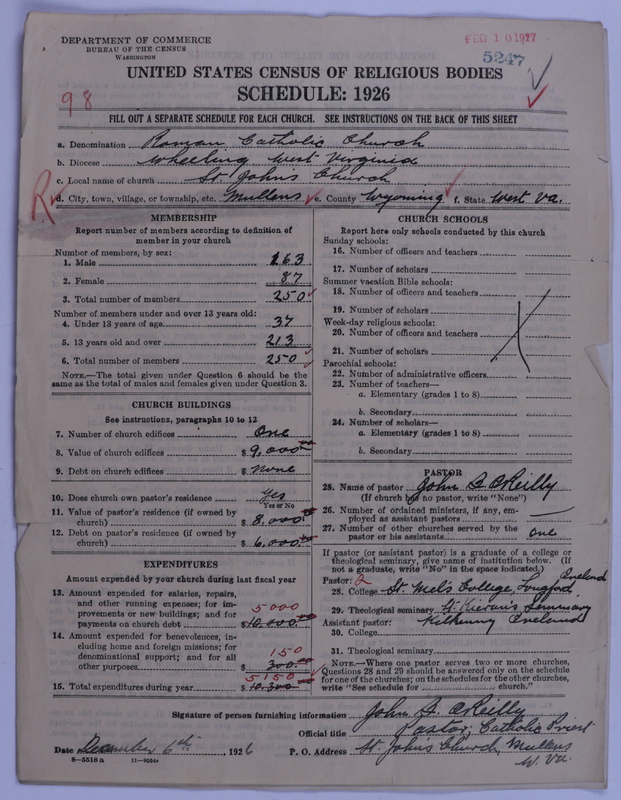 DEPARTMENT OF COMMERCE
BUREAU OF THE CENSUS
WASHINGTON
FEB 10 1927
5247
UNITED STATES CENSUS OF RELIGIOUS BODIES
SCHEDULE: 1926
98
FILL OUT A SEPARATE SCHEDULE FOR EACH CHURCH. SEE INSTRUCTIONS ON THE BACK OF THIS SHEET
a. Denomination Roman Catholic Church
b. Diocese Wheeling West Virginia
c. Local name of church St. John's Church
R
d. City, town, village, or township, etc. Mullens e. County Wyoming f. State West Va.
MEMBERSHIP
Report number of members according to definition of
member in your church
Number of members, by sex:
1. Male 163
2. Female 87
3. Total number of members 250
Number of members under and over 13 years old:
4. Under 13 years of age 37
5. 13 years old and over 213
6. Total number of members 250
NOTE.—The total given under Question 6 should be the
same as the total of males and females given under Question 3.
CHURCH BUILDINGS
See instructions, paragraphs 10 to 12
7. Number of church edifices One
8. Value of church edifices $ 9,000.00
9. Debt on church edifices $ None
10. Does church own pastor's residence Yes
Yes or No
11. Value of pastor's residence (if owned by
church) $ 8,000.00
12. Debt on pastor's residence (if owned by
church) $ 6,000.00
EXPENDITURES
Amount expended by your church during last fiscal year
13. Amount expended for salaries, repairs,
and other running expenses; for im-
provements or new buildings; and for
payments on church debt $ 10,000.00
5000
14. Amount expended for benevolences, in-
cluding home and foreign missions; for
denominational support; and for all
other purposes $ 300.00
150
5150
15. Total expenditures during year $ 10,300.00
CHURCH SCHOOLS
Report here only schools conducted by this church
Sunday schools:
16. Number of officers and teachers
17. Number of scholars
Summer vacation Bible schools:
18. Number of officers and teachers
19. Number of scholars
Week-day religious schools:
20. Number of officers and teachers
21. Number of scholars
Parochial schools:
22. Number of administrative officers
23. Number of teachers—
a. Elementary (grades 1 to 8)
b. Secondary
24. Number of scholars—
a. Elementary (grades 1 to 8)
b. Secondary
PASTOR
25. Name of pastor John O'Reilly
(If church has no pastor, write "None")
26. Number of ordained ministers, if any, em-
ployed as assistant pastors —
27. Number of other churches served by the
pastor or his assistants one
If pastor (or assistant pastor) is a graduate of a college or
theological seminary, give name of institution below. (If
not a graduate, write "No" in the space indicated.)
Pastor: 2 Ireland
28. College St. Mel's College, Longford
29. Theological seminary St. Kieran's Seminary
Assistant pastor: Kilkenny Ireland
30. College
31. Theological seminary
NOTE.—Where one pastor serves two or more churches,
Questions 28 and 29 should be answered only on the schedule
for one of the churches; on the schedules for the other churches,
write "See schedule for church."
Signature of person furnishing information John O'Reilly
Official title Pastor, Catholic Priest
Date December 6th, 1926 P. O. Address St. John's Church, Mullens
W. Va.
8—5518 a 11—9034a